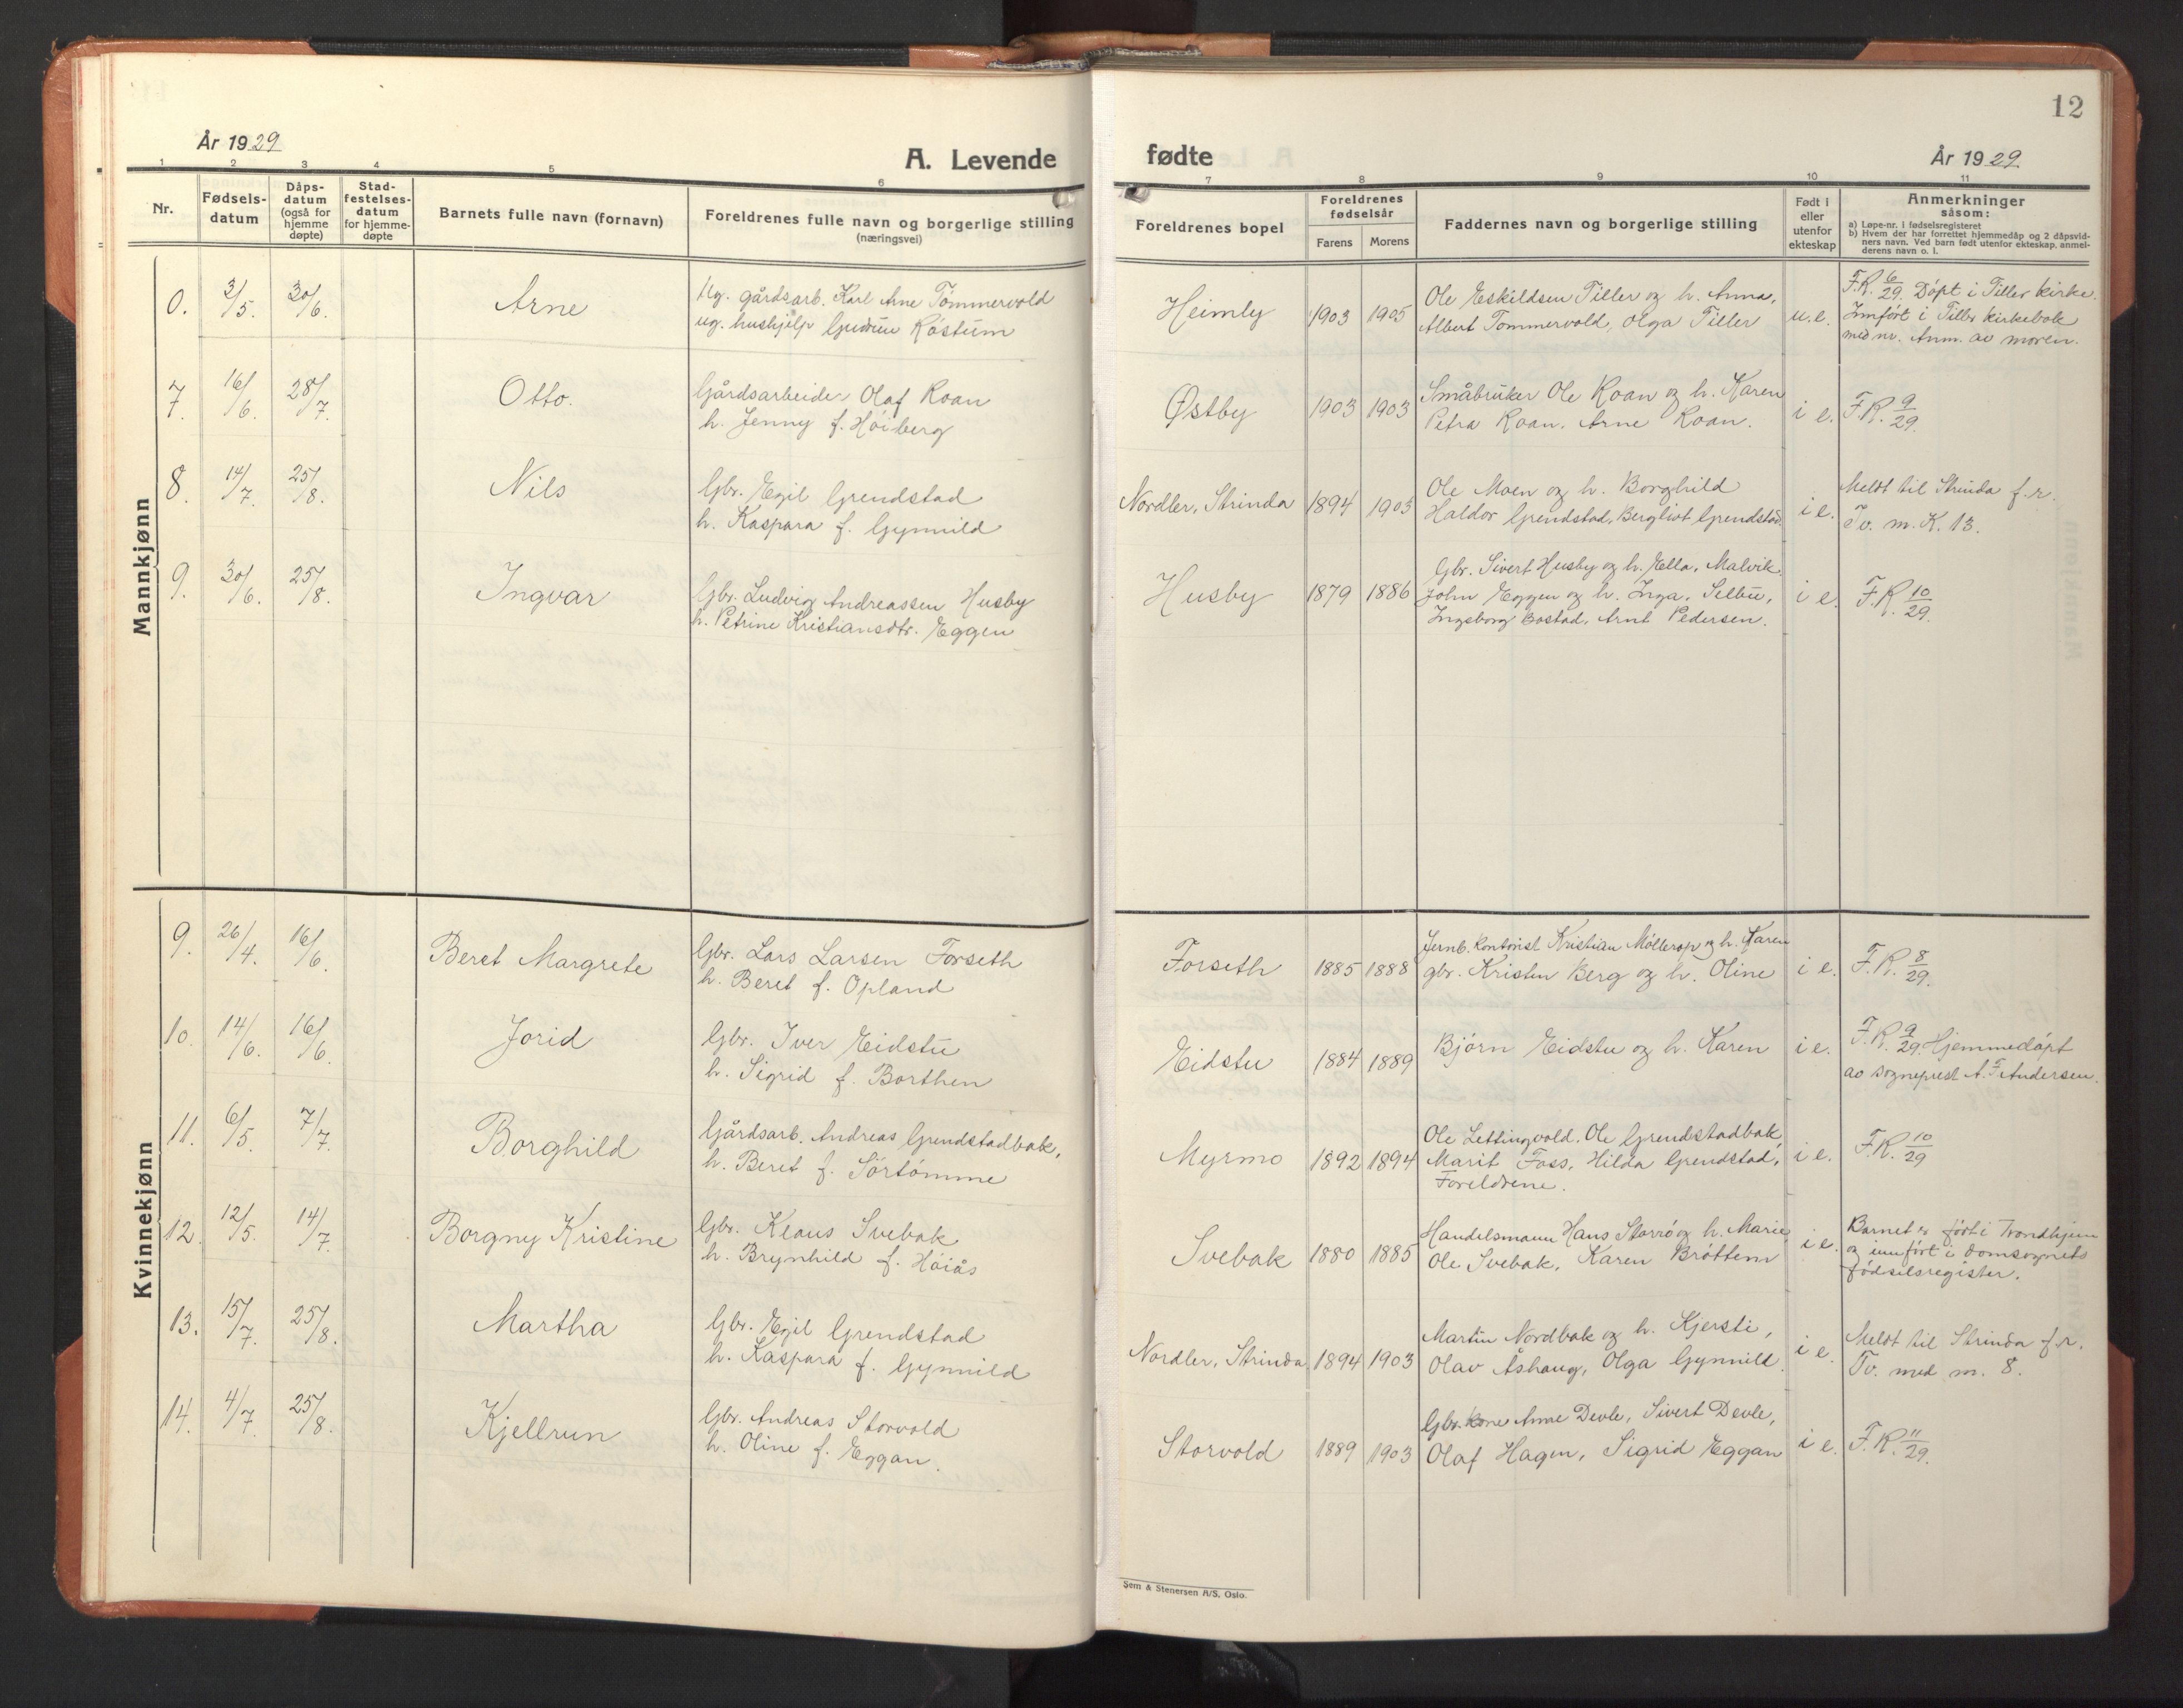 12
År 1929
A. Levende
fødte
År 1929.
1 2 3 4 5 6 7 8 9 10 11
Nr.
Fødsels-
datum
Dåps-
datum
(også for
hjemme
døpte)
Stad-
festelses-
datum
for hjemme-
døpte
Barnets fulle navn (fornavn)
Foreldrenes fulle navn og borgerlige stilling
(næringsvei)
Foreldrenes bopel
Foreldrenes
fødselsår
Farens Morens
Faddernes navn og borgerlige stilling
Født i
eller
utenfor
ekteskap
Anmerkninger
såsom:
a) Løpe-nr. i fødselsregisteret
b) Hvem der har forrettet hjemmedåp og 2 dåpsvid-
ners navn. Ved barn født utenfor ekteskap, anmel-
derens navn o. l.
Mannkjønn
0. 3/5. 30/6. Arne
Ug. gårdsarb. Karl Arne Tømmervold
ug. hushjelp Gudrun Røstum
Heimly 1903 1905
Ole Eskildsen Tiller og h. Anna,
Albert Tømmervold, Olga Tiller
u.e.
F.R. 6/29. Døpt i Tiller kirke.
Innført i Tiller kirkebok
med nr. Anm. av moren.
7. 16/6. 28/7. Otto.
Gårdsarbeider Olaf Roan
h. Jenny f. Höiberg
Østby 1903 1903
Småbruker Ole Roan og h. Karen
Petra Roan, Arne Roan.
i e. F.R. 9/29.
8. 14/7. 25/8. Nils
Gbr. Egil Grendstad
h. Kaspara f. Gynnild
Nordler, Strinda 1894 1903
Ole Moen og h. Borghild
Haldor Grendstad, Bergliot Grendstad.
i e.
Meldt til Strinda f.r.
Tv. m. K. 13.
9. 30/6. 25/8. Ingvar
Gbr. Ludvig Andreassen Husby
h. Petrine Kristiansdtr. Eggen
Husby 1879 1886
Gbr. Sivert Husby og h. Ella, Malvik.
John Eggen og h. Inga, Selbu,
Ingeborg Bostad, Arnt Pedersen.
i e. F.R. 10/29.
Kvinnekjønn
9. 26/4. 16/6. Beret Margrete
Gbr. Lars Larsen Forseth
h. Beret f. Opland
Forseth 1885 1888
Jernb. kontorist Kristian Möllerop og h. Karen
gbr. Kristen Berg og h. Oline
i e. F.R. 8/29.
10. 14/6. 16/6. Jorid
Gbr. Iver Eidstu
h. Sigrid f. Borthen
Eidstu 1884 1889
Bjørn Eidstu og h. Karen
i e.
F.R. 9/29. Hjemmedöpt
av sogneprest A. F. Andersen.
11. 6/5. 7/7. Borghild
Gårdsarb. Andreas Grendstadbak,
h. Beret f. Sörtömme
Myrmo 1892 1894
Ole Lettingvold. Ole Grendstadbak,
Marit Foss, Hilda Grendstad,
Foreldrene.
i e. F.R. 10/29
12. 12/5. 14/7. Borgny Kristine
Gbr. Klaus Svebak
h. Brynhild f. Höiås
Svebak 1880 1885
Handelsmann Hans Storrö og h. Marie,
Ole Svebak, Karen Bröttem
i e.
Barnet er født i Trondhjem
og innført i Domsognets
fødselsregister.
13. 15/7. 25/8. Martha
Gbr. Egil Grendstad
h. Kaspara f. Gynnild
Nordler, Strinda, 1894 1903
Martin Nordbak og h. Kjersti,
Olav Åshaug, Olga Gynnild.
i e.
Meldt til Strinda f.r.
Tv. med m. 8.
14. 4/7. 25/8. Kjellrun
Gbr. Andreas Storvold
h. Oline f. Eggan.
Storvold 1889 1903
Gbr. kone Anne Devle, Sivert Devle,
Olaf Hagen, Sigrid Eggan
i e. F.R. 11/29.
Sem & Stenersen A/S, Oslo.